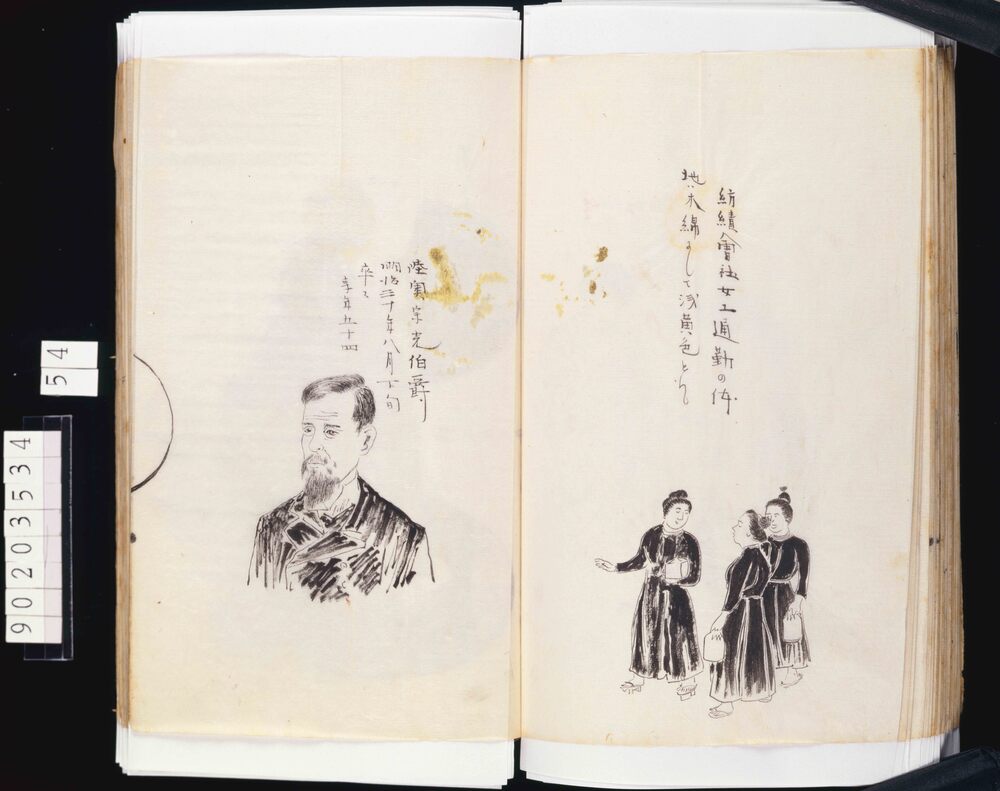 紡績會社女工通勤の体
地木綿ニして浅黄色と
陸奥宗光伯爵
明治三十年八月下旬
卒ス
享年五十四
54
90203534